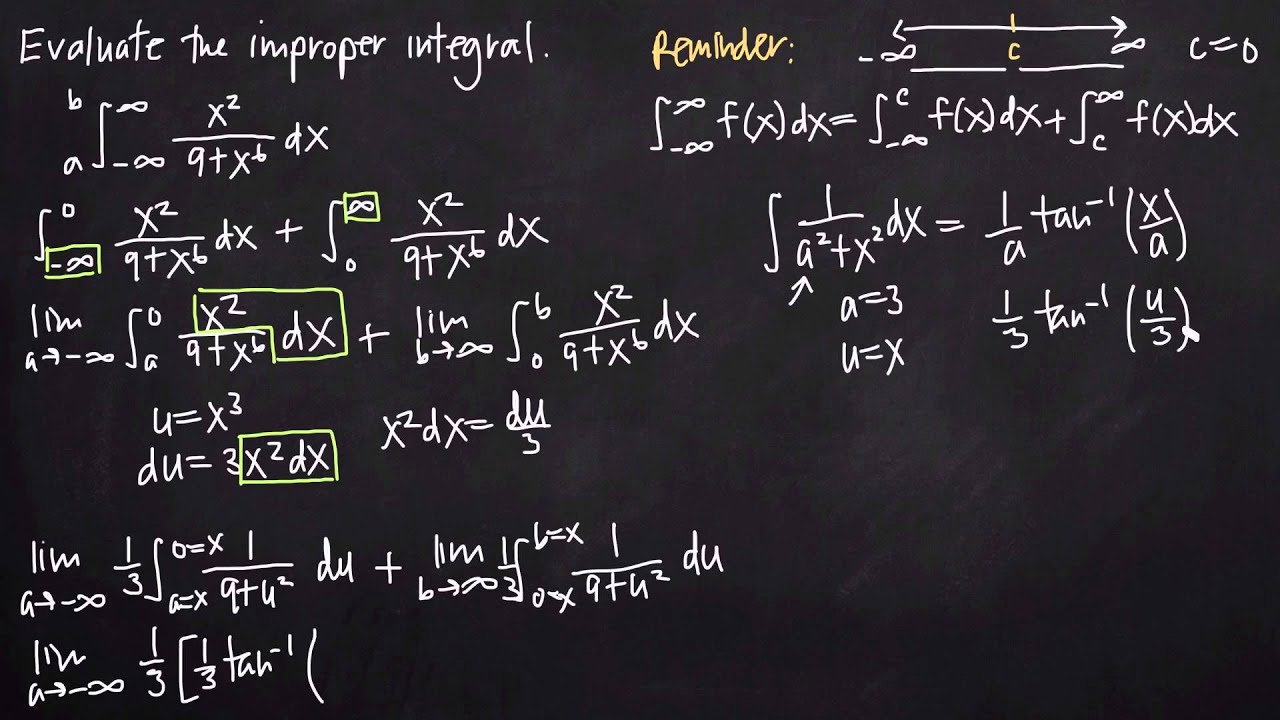 Evaluate the improper integral.
b a ∫_{-∞}^{∞} x²/(9+x⁶) dx
∫_{-∞}^{0} x²/(9+x⁶) dx + ∫_{0}^{∞} x²/(9+x⁶) dx
lim_{a→-∞} ∫_{a}^{0} x²/(9+x⁶) dx + lim_{b→∞} ∫_{0}^{b} x²/(9+x⁶) dx
u=x³
du=3x²dx
x²dx=du/3
lim_{a→-∞} 1/3 ∫_{a=x}^{0=x} 1/(9+u²) du + lim_{b→∞} 1/3 ∫_{0=x}^{b=x} 1/(9+u²) du
lim_{a→-∞} 1/3 [1/3 tan⁻¹(
Reminder:
-∞ c ∞ c=0
∫_{-∞}^{∞} f(x)dx = ∫_{-∞}^{c} f(x)dx + ∫_{c}^{∞} f(x)dx
∫ 1/(a²+x²) dx = 1/a tan⁻¹(x/a)
a=3
u=x
1/3 tan⁻¹(u/3)